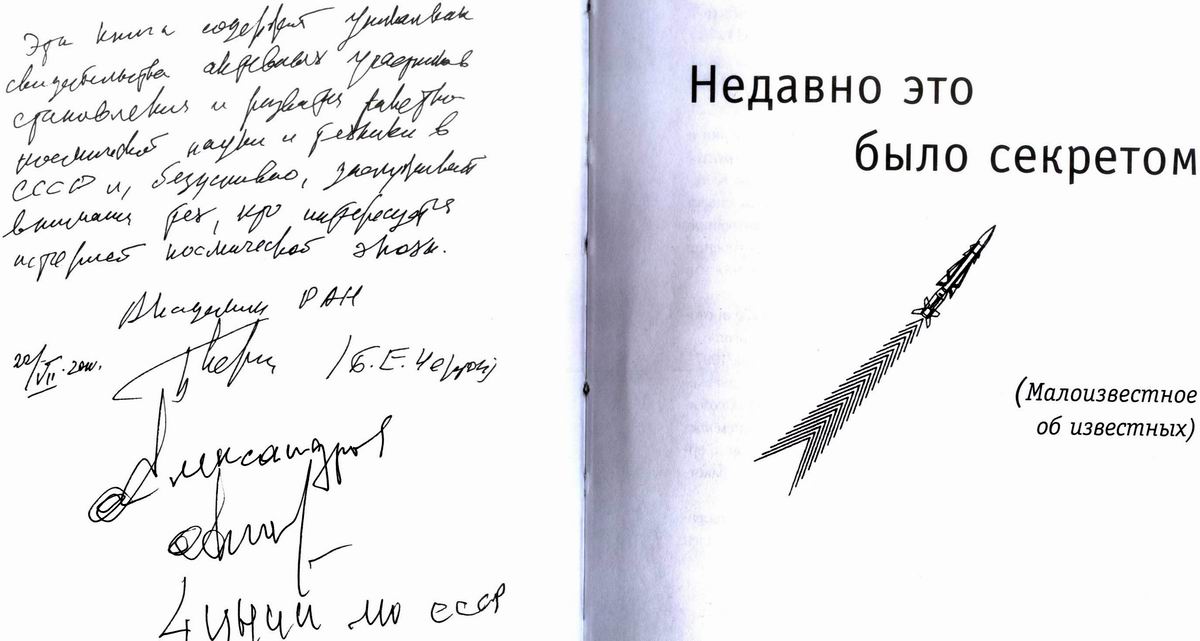 Эта книга содержит уникальные
свидетельства активных участников
становления и развития ракетно-
космической науки и техники в
СССР и, безусловно, заслуживает
внимания тех, кто интересуется
историей космической эпохи.
Академик РАН
/Б.Е. Черток)
Александров
4 ЦНИИ МО СССР
Недавно это
было секретом
(Малоизвестное
об известных)